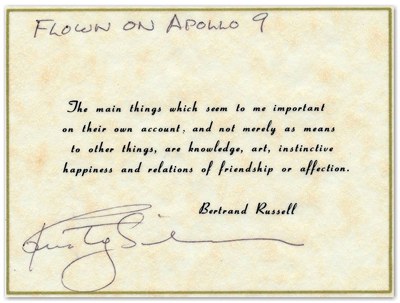 FLOWN ON APOLLO 9
The main things which seem to me important
on their own account, and not merely as means
to other things, are knowledge, art, instinctive
happiness and relations of friendship or affection.
Bertrand Russell